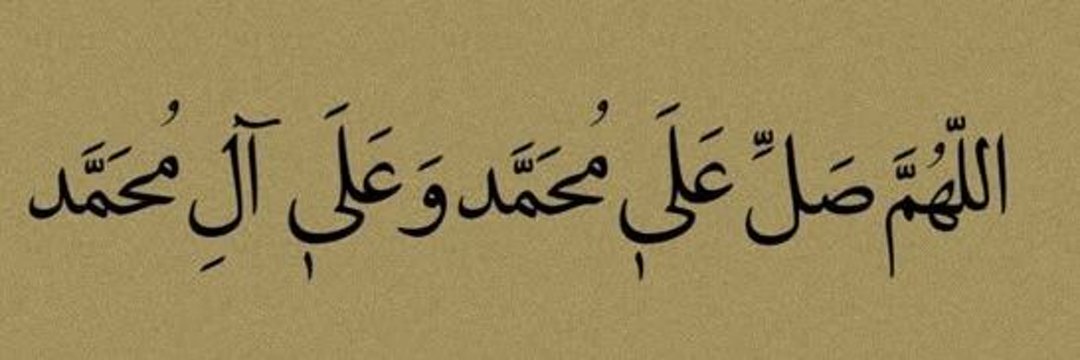 اللّهُمَّ صَلِّ عَلَى مُحَمَّد وَ عَلَى آلِ مُحَمَّد